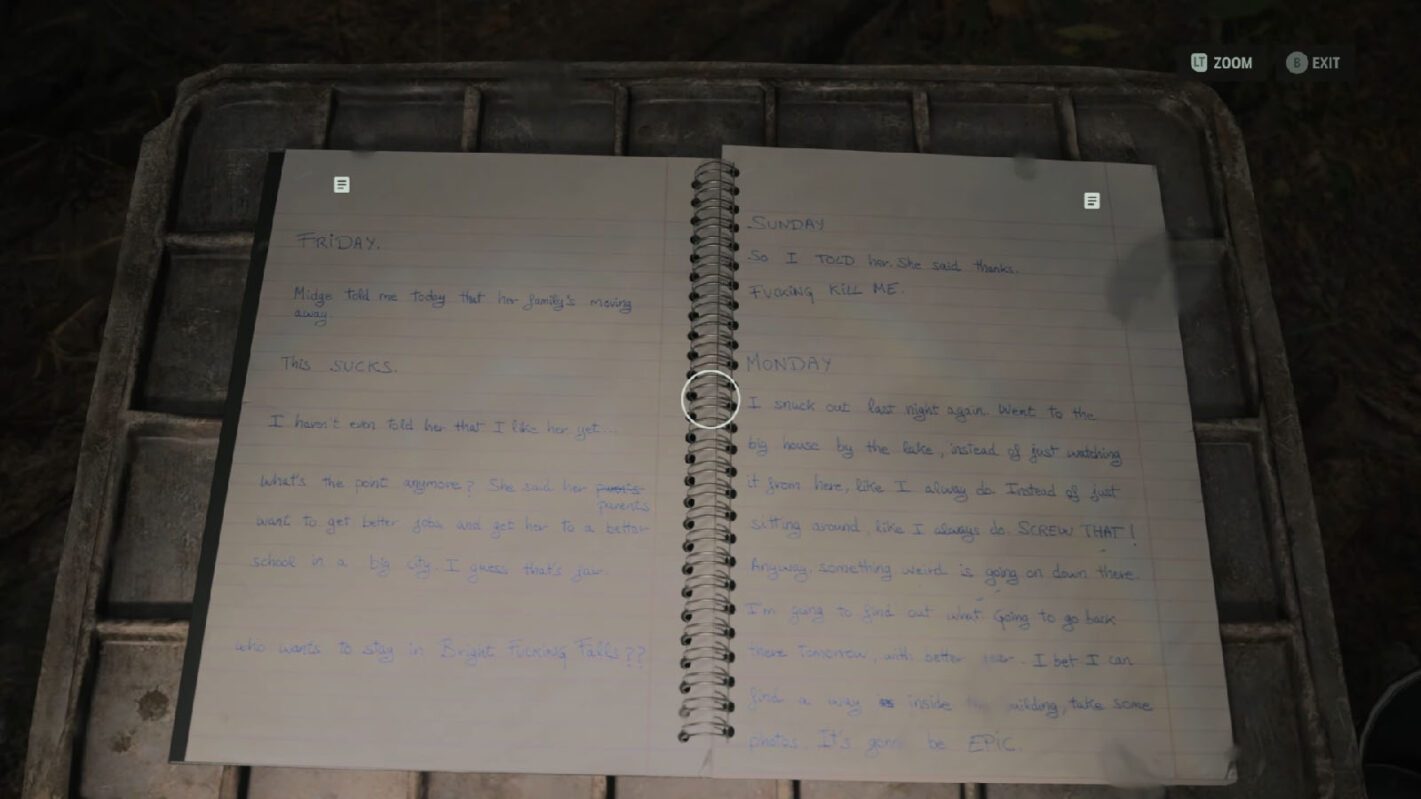 LT ZOOM B EXIT
FRiDAY.
Midge told me today that her family's moving
away.
This SUCKS.
I haven't even told her that I like her yet...
What's the point anymore? She said her
parents
want to get better jobs and get her to a better
school in a big city. I guess that's fair.
who wants to stay in Bright FUCKiNg Falls??
SUNDAY
So I TOLD her. She said thanks.
FUCKiNg KiLL ME.
MONDAY
I snuck out last night again. Went to the
big house by the lake, instead of just watching
it from here, like I alway do. Instead of just
sitting around, like I always do. SCREW THAT!
Anyway, something weird is going on down there.
I'm going to find out what. Going to go back
there tomorrow, with better. I bet I can
find a way inside, take some
photos. It's be EPiC.